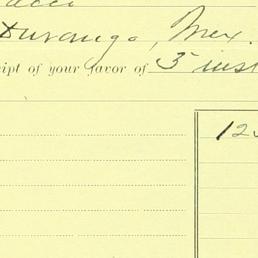 Durango, Mex.
ipt of your favor of 3 inst
12